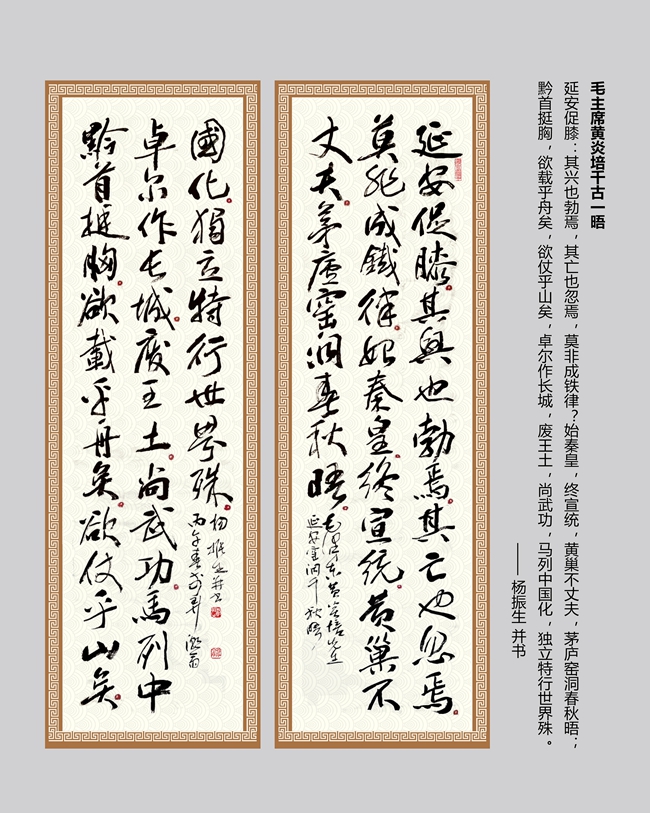 毛主席黄炎培千古一晤
延安促膝：其兴也勃焉，其亡也忽焉，莫非成铁律？始秦皇，终宣统，黄巢不丈夫，茅庐窑洞春秋晤；
黔首挺胸，欲载乎舟矣，欲仗乎山矣，卓尔作长城，废王土，尚武功，马列中国化，独立特行世界殊。
—— 杨振生 并书
延安促膝其興也勃焉其亡也忽焉
莫非成鐵律始秦皇終宣統黄巢不
丈夫茅廬窑洞春秋晤
毛澤東黄炎培先生
延安窑洞千秋晤
黔首挺胸欲載乎舟矣欲仗乎山矣
卓尔作长城废王土尚武功馬列中
國化獨立特行世界殊
杨振生并书
丙午春